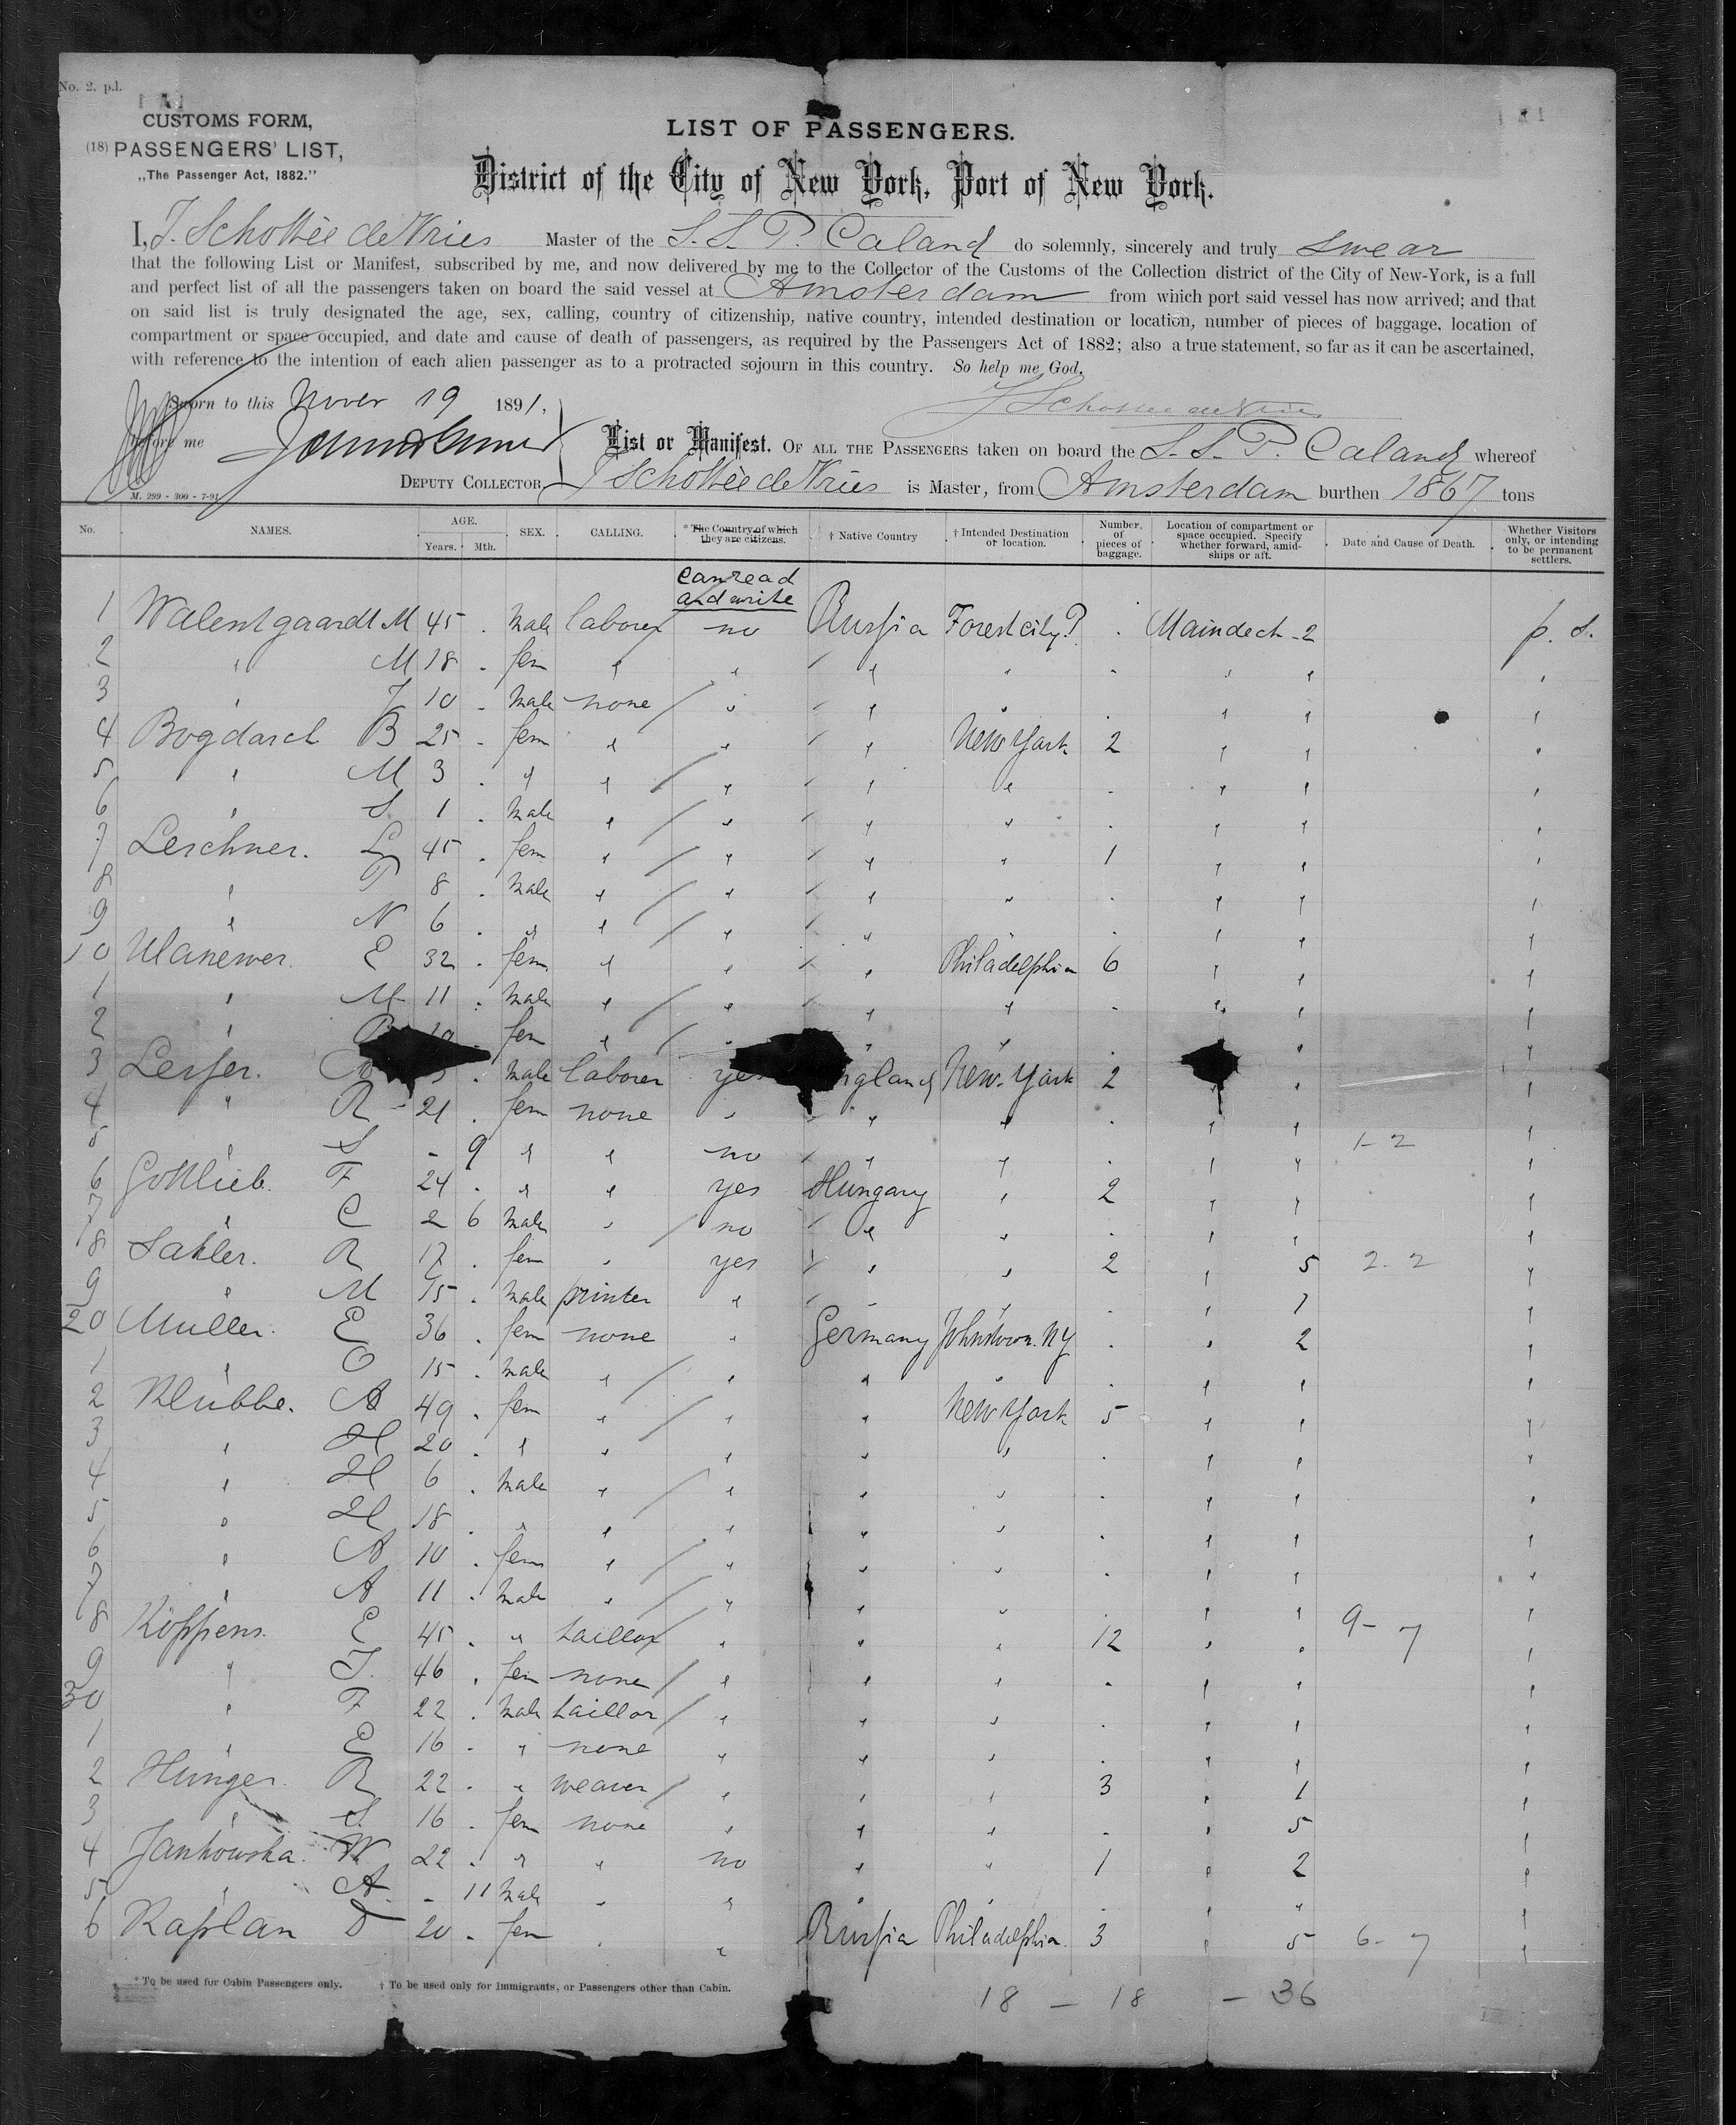 No. 2. p.l.
CUSTOMS FORM,
(18) PASSENGERS' LIST,
„The Passenger Act, 1882."
LIST OF PASSENGERS.
District of the City of New York, Port of New York.
I, J. Schottée de Vries Master of the S. S. P. Caland do solemnly, sincerely and truly swear
that the following List or Manifest, subscribed by me, and now delivered by me to the Collector of the Customs of the Collection district of the City of New-York, is a full
and perfect list of all the passengers taken on board the said vessel at Amsterdam from which port said vessel has now arrived; and that
on said list is truly designated the age, sex, calling, country of citizenship, native country, intended destination or location, number of pieces of baggage, location of
compartment or space occupied, and date and cause of death of passengers, as required by the Passengers Act of 1882; also a true statement, so far as it can be ascertained,
with reference to the intention of each alien passenger as to a protracted sojourn in this country. So help me God.
Sworn to this Nover 19 1891,
J Schottée de Vries
before me
List or Manifest. OF ALL THE PASSENGERS taken on board the S. S. P. Caland whereof
DEPUTY COLLECTOR J Schottée de Vries is Master, from Amsterdam burthen 1867 tons
M. 299 - 300 - 7-91
No. NAMES. AGE. Years. Mth. SEX. CALLING. * The Country of which they are citizens. † Native Country † Intended Destination or location. Number, of pieces of baggage. Location of compartment or space occupied. Specify whether forward, amidships or aft. Date and Cause of Death. Whether Visitors only, or intending to be permanent settlers.
can read
and write
1 Walentgaardt M 45 . Male laborer no Russia Forest city? . Maindeck - 2 p. s.
2 " M 18 . fem " " " " . " " "
3 " J 10 . Male none " " " . " " "
4 Bogdarch B 25 . fem " " " New York 2 " " "
5 " M 3 . " " " " " . " " "
6 " S 1 . Male " " " " . " " "
7 Lerchner. L 45 . fem " " " " 1 " " "
8 " T 8 . Male " " " " . " " "
9 " N 6 . " " " " " . " " "
10 Ulanewer. E 32 . fem " " " Philadelphia 6 " " "
1 " M 11 . Male " " " " . " " "
2 " . fem " " " " . " " "
3 Lesser. . Male laborer yes England New-York 2 " " "
4 " R 21 . fem none " " " . " " "
5 " S - 9 " " no " " . " " 1-2 "
6 Gottlieb. F 24 . " " yes Hungary " 2 " " "
7 " C 2 6 Male " no " " . " " "
8 Sahler. R 17 . fem " yes " " 2 " 5 2-2 "
9 " M 15 . Male printer " " " . " 1 "
20 Muller. E 36 . fem none " Germany Johnstown. NY . " 2 "
1 " O 15 . Male " " " " . " " "
2 Klubbe. A 49 . fem " " " New York 5 " " "
3 " H 20 . " " " " " . " " "
4 " H 6 . Male " " " " . " " "
5 " H 18 . " " " " " . " " "
6 " A 10 . fem " " " " . " " "
7 " A 11 . Male " " " " . " " "
8 Koppens. E 45 . " taillor " " " 12 " " 9-7 "
9 " J. 46 . fem none " " " . " " "
30 " F 22 . Male taillor " " " . " " "
1 " E 16 . " none " " " . " " "
2 Hunger. R 22 . " weaver " " " 3 " 1 "
3 " S. 16 . fem none " " " . " 5 "
4 Jankowska. W 22 . " " no " " 1 " 2 "
5 " A. - 11 Male " " " " . " " "
6 Kaplan D 20 . fem " " Russia Philadelphia. 3 " 5 6-7 "
* To be used for Cabin Passengers only. † To be used only for Immigrants, or Passengers other than Cabin.
18 - 18 - 36